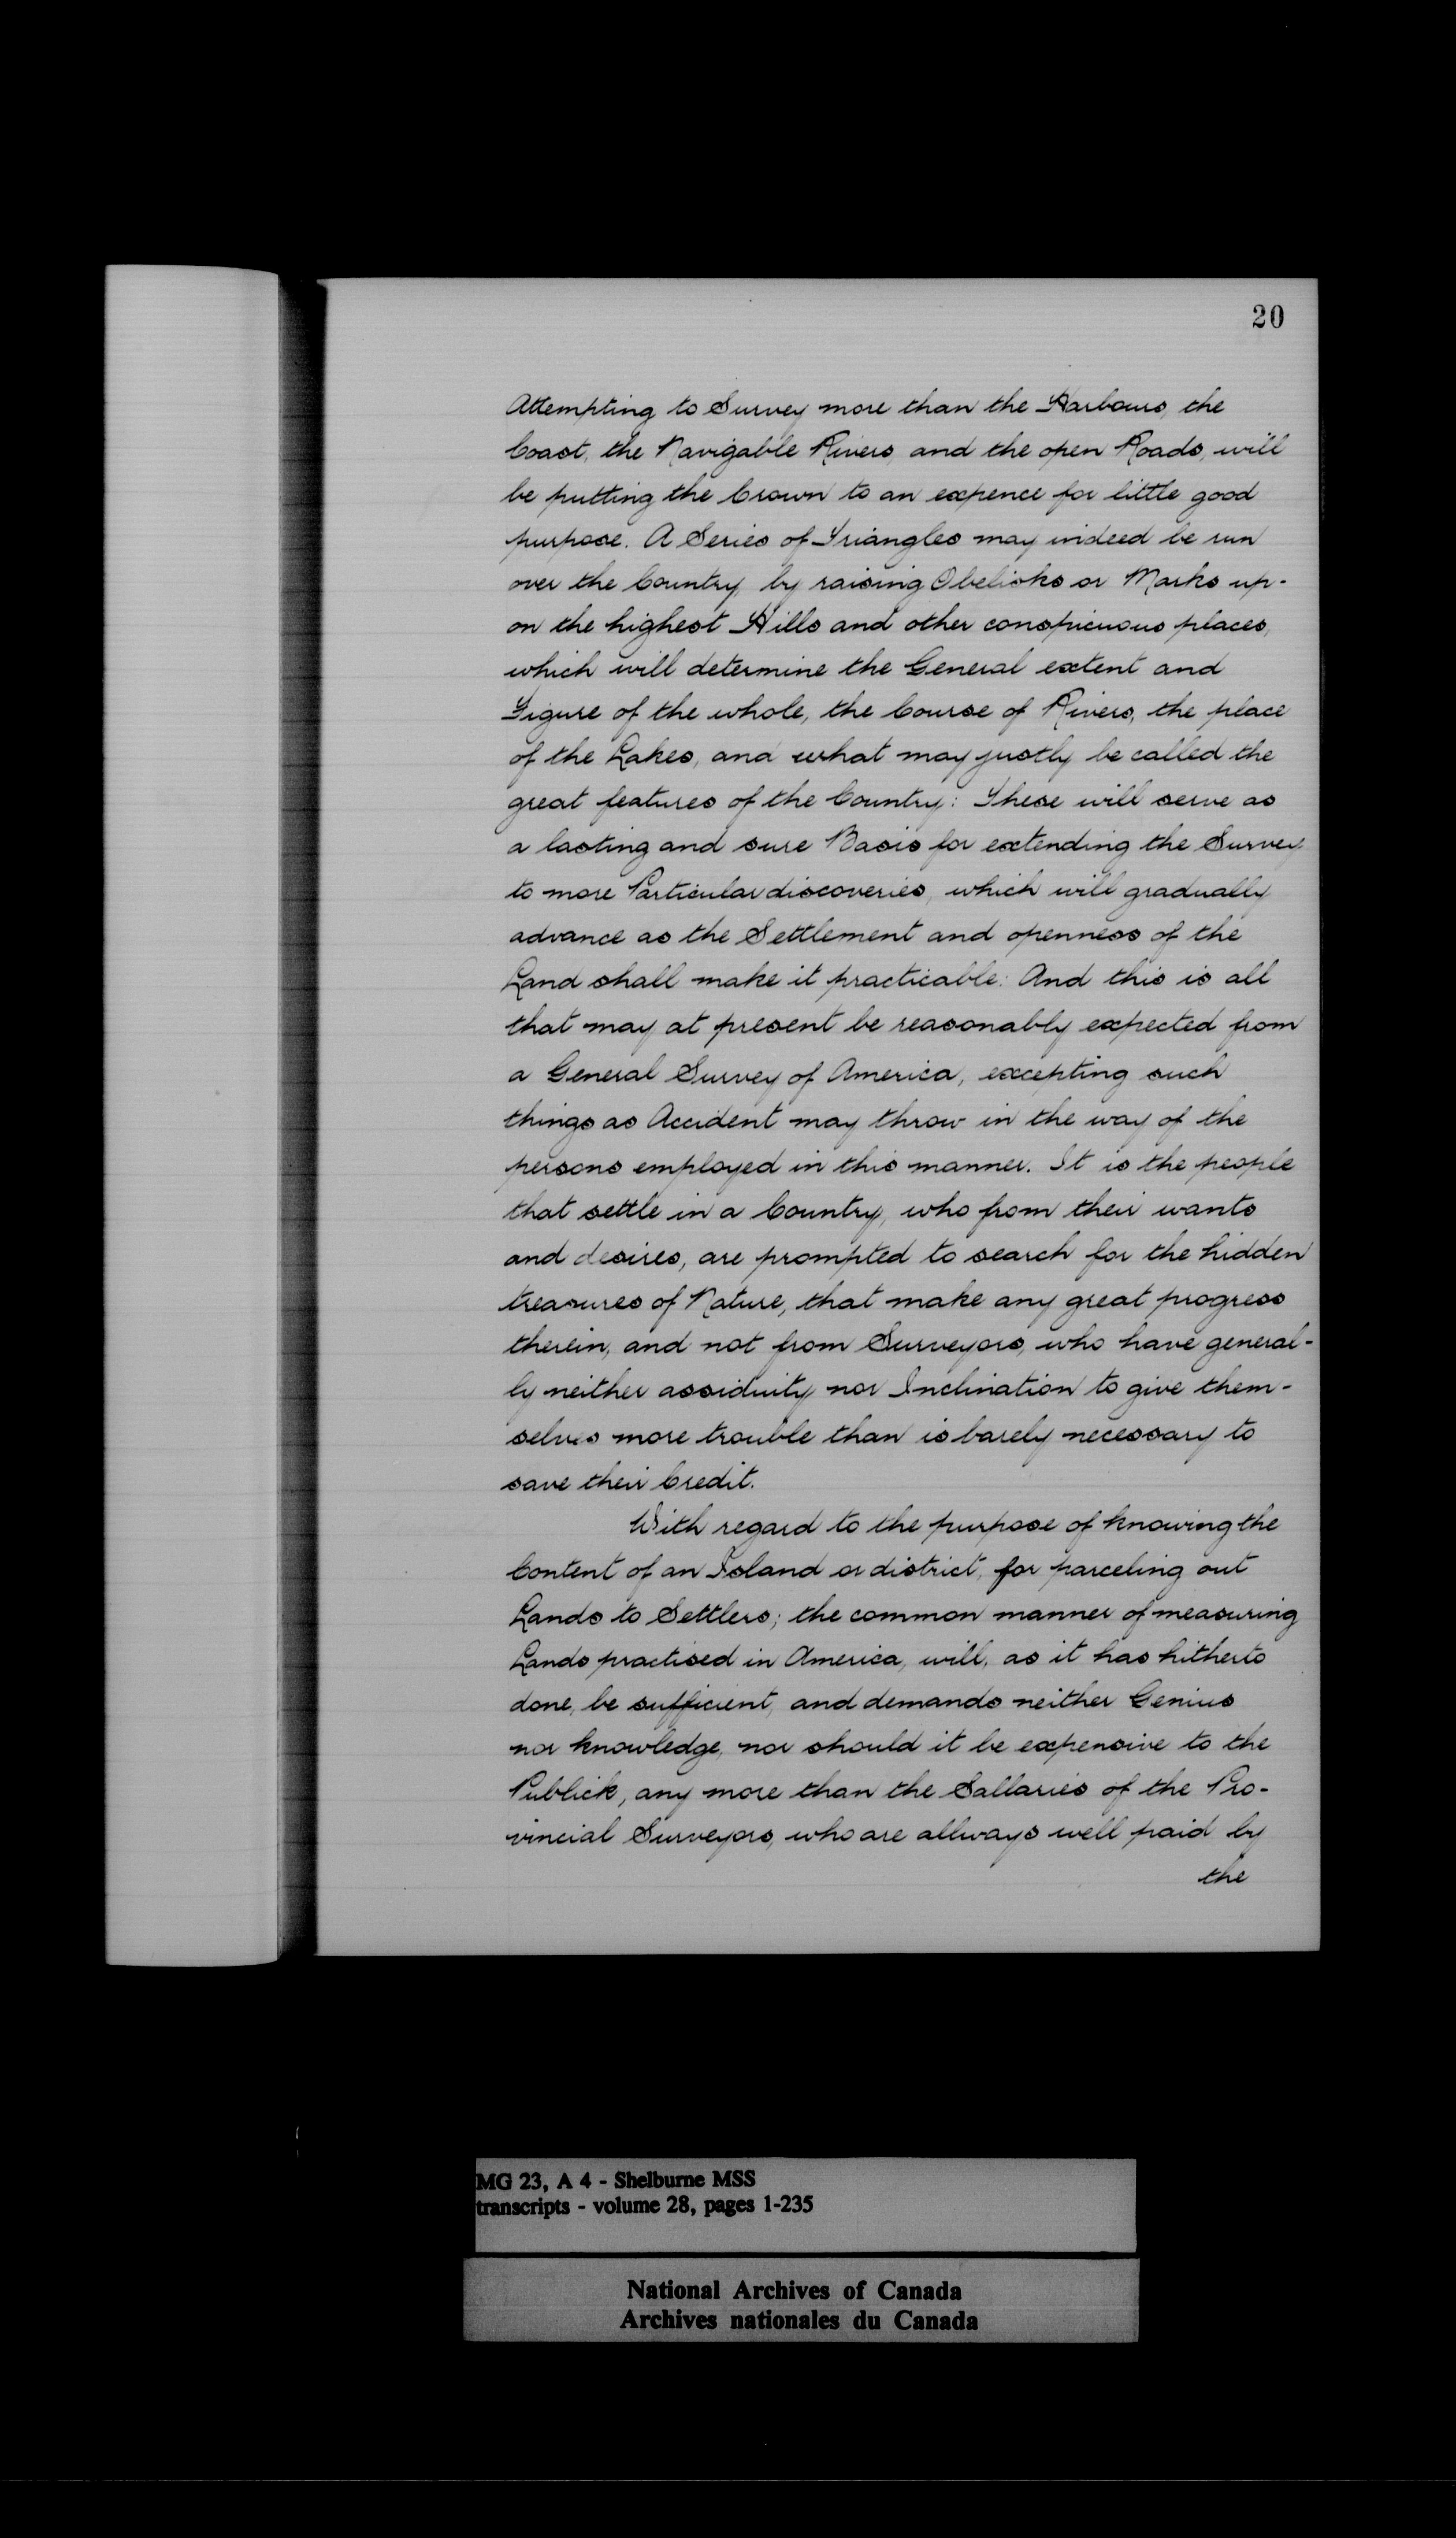 20
Attempting to Survey more than the Harbours, the
Coast, the Navigable Rivers, and the open Roads, will
be putting the Crown to an expence for little good
purpose. A Series of Triangles may indeed be run
over the Country, by raising Obelisks or Marks up-
on the highest Hills and other conspicuous places,
which will determine the General extent and
Figure of the whole, the Course of Rivers, the place
of the Lakes, and what may justly be called the
great features of the Country: These will serve as
a lasting and sure Basis for extending the Survey
to more Particular discoveries, which will gradually
advance as the Settlement and openness of the
Land shall make it practicable: And this is all
that may at present be reasonably expected from
a General Survey of America, excepting such
things as Accident may throw in the way of the
persons employed in this manner. It is the people
that settle in a Country, who from their wants
and desires, are prompted to search for the hidden
treasures of Nature, that make any great progress
therein, and not from Surveyors, who have general-
ly neither assiduity nor Inclination to give them-
selves more trouble than is barely necessary to
save their Credit.
With regard to the purpose of knowing the
Content of an Island or district, for parceling out
Lands to Settlers; the common manner of measuring
Lands practised in America, will, as it has hitherto
done, be sufficient, and demands neither Genius
nor knowledge, nor should it be expensive to the
Publick, any more than the Sallaries of the Pro-
vincial Surveyors, who are allways well paid by
the
MG 23, A 4 - Shelburne MSS
transcripts - volume 28, pages 1-235
National Archives of Canada
Archives nationales du Canada